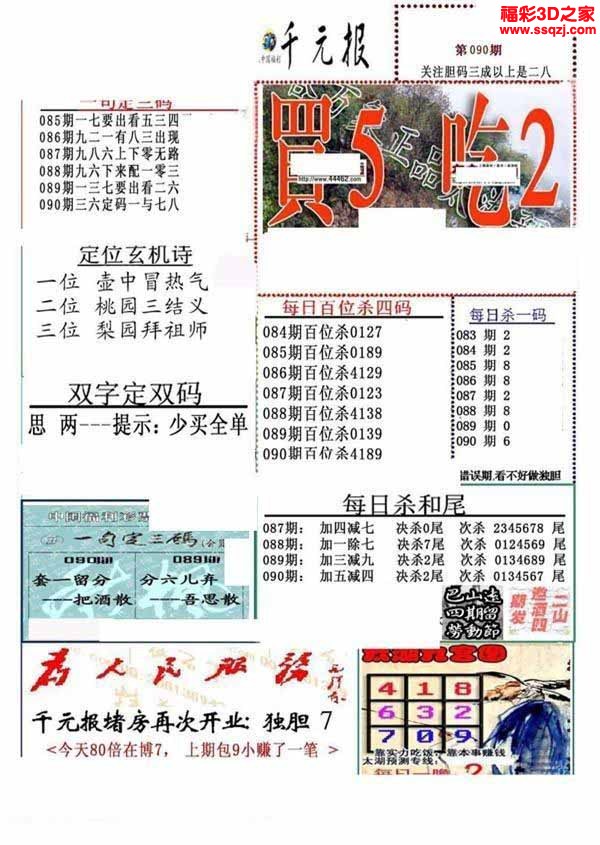 福彩3D之家
www.ssqzj.com
千元报
第090期
关注胆码三成以上是二八
一句定三码
085期一七要出看五三四
086期九二一有八三出现
087期九八六上下零无路
088期九六下来配一零三
089期一三七要出看二六
090期三六定码一与七八
買5 吃2
正品
http://www.44462.com
定位玄机诗
一位 壶中冒热气
二位 桃园三结义
三位 梨园拜祖师
双字定双码
思 两---提示：少买全单
每日百位杀四码
084期百位杀0127
085期百位杀0189
086期百位杀4129
087期百位杀0123
088期百位杀4138
089期百位杀0139
090期百位杀4189
每日杀一码
083 期 2
084 期 2
085 期 8
086 期 8
087 期 2
088 期 8
089 期 0
090 期 6
错误期,看不好做独胆
每日杀和尾
087期： 加四减七 决杀0尾 次杀 2345678 尾
088期： 加一除七 决杀7尾 次杀 0124569 尾
089期： 加三减九 决杀2尾 次杀 0134689 尾
090期： 加五减四 决杀2尾 次杀 0134567 尾
中国福利彩票
一句定三码
090期 089期
套一留分 分六儿弃
一把酒散 一吾思散
四期留
劳动節
二山
为人民服务
千元报堵房再次开业: 独胆 7
<今天80倍在博7, 上期包9小赚了一笔 >
4 1 8
6 3 2
7 0 9
靠实力吃饭, 靠本事赚钱
太湖预测专线:
每日一胆 2